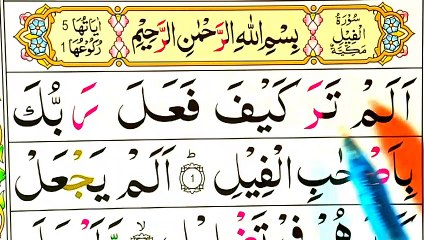 سُوْرَةُ الْفِيْلِ مَكِّيَّةٌ
بِسْمِ اللّٰهِ الرَّحْمٰنِ الرَّحِيْمِ
اٰيَاتُهَا 5
رُكُوْعُهَا 1
اَلَمْ تَرَ كَيْفَ فَعَلَ رَبُّكَ
بِاَصْحٰبِ الْفِيْلِ ؕ ١ اَلَمْ يَجْعَلْ